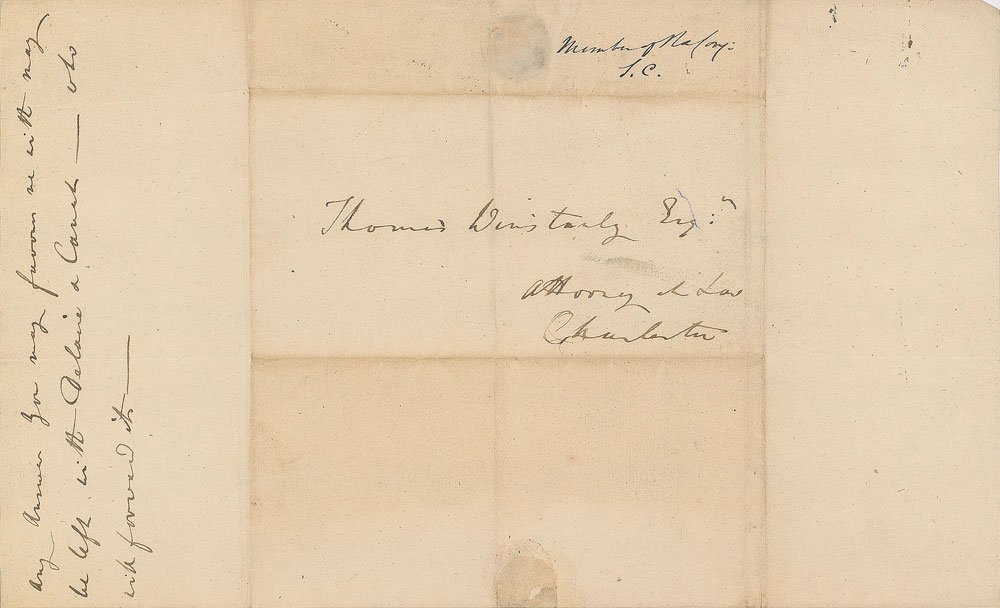 Member of Ra Cong:
S.C.
Thomas Winstanly Esq:r
attorney at Law
Charleston
any answer you may favour me with may
be left with Delaire & Canut — who
will forward it —